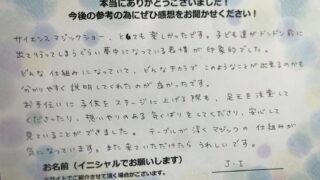 本当にありがとうございました！
今後の参考の為にぜひ感想をお聞かせください！
サイエンスマジックショー、とても楽しかったです。子ども達がドンドン前に
出て行ってしまうぐらい夢中になっている表情が印象的でした。
どんな仕組みになっていて、どんなチカラでこのようなことが出来るのかも
分かりやすく説明してくれたのが良かったです。
お手伝いに子供をステージに上げる際も、足元を注意して
くださったり、思いやりのある気くばりをしてくださり、安心して
見ていることができました。テーブルが浮くマジックの仕組みが
気になっています。また来ていただけたらうれしいです。
お名前（イニシャルでお願いします） J・I
※サイトでご紹介させて頂く場合がございます。